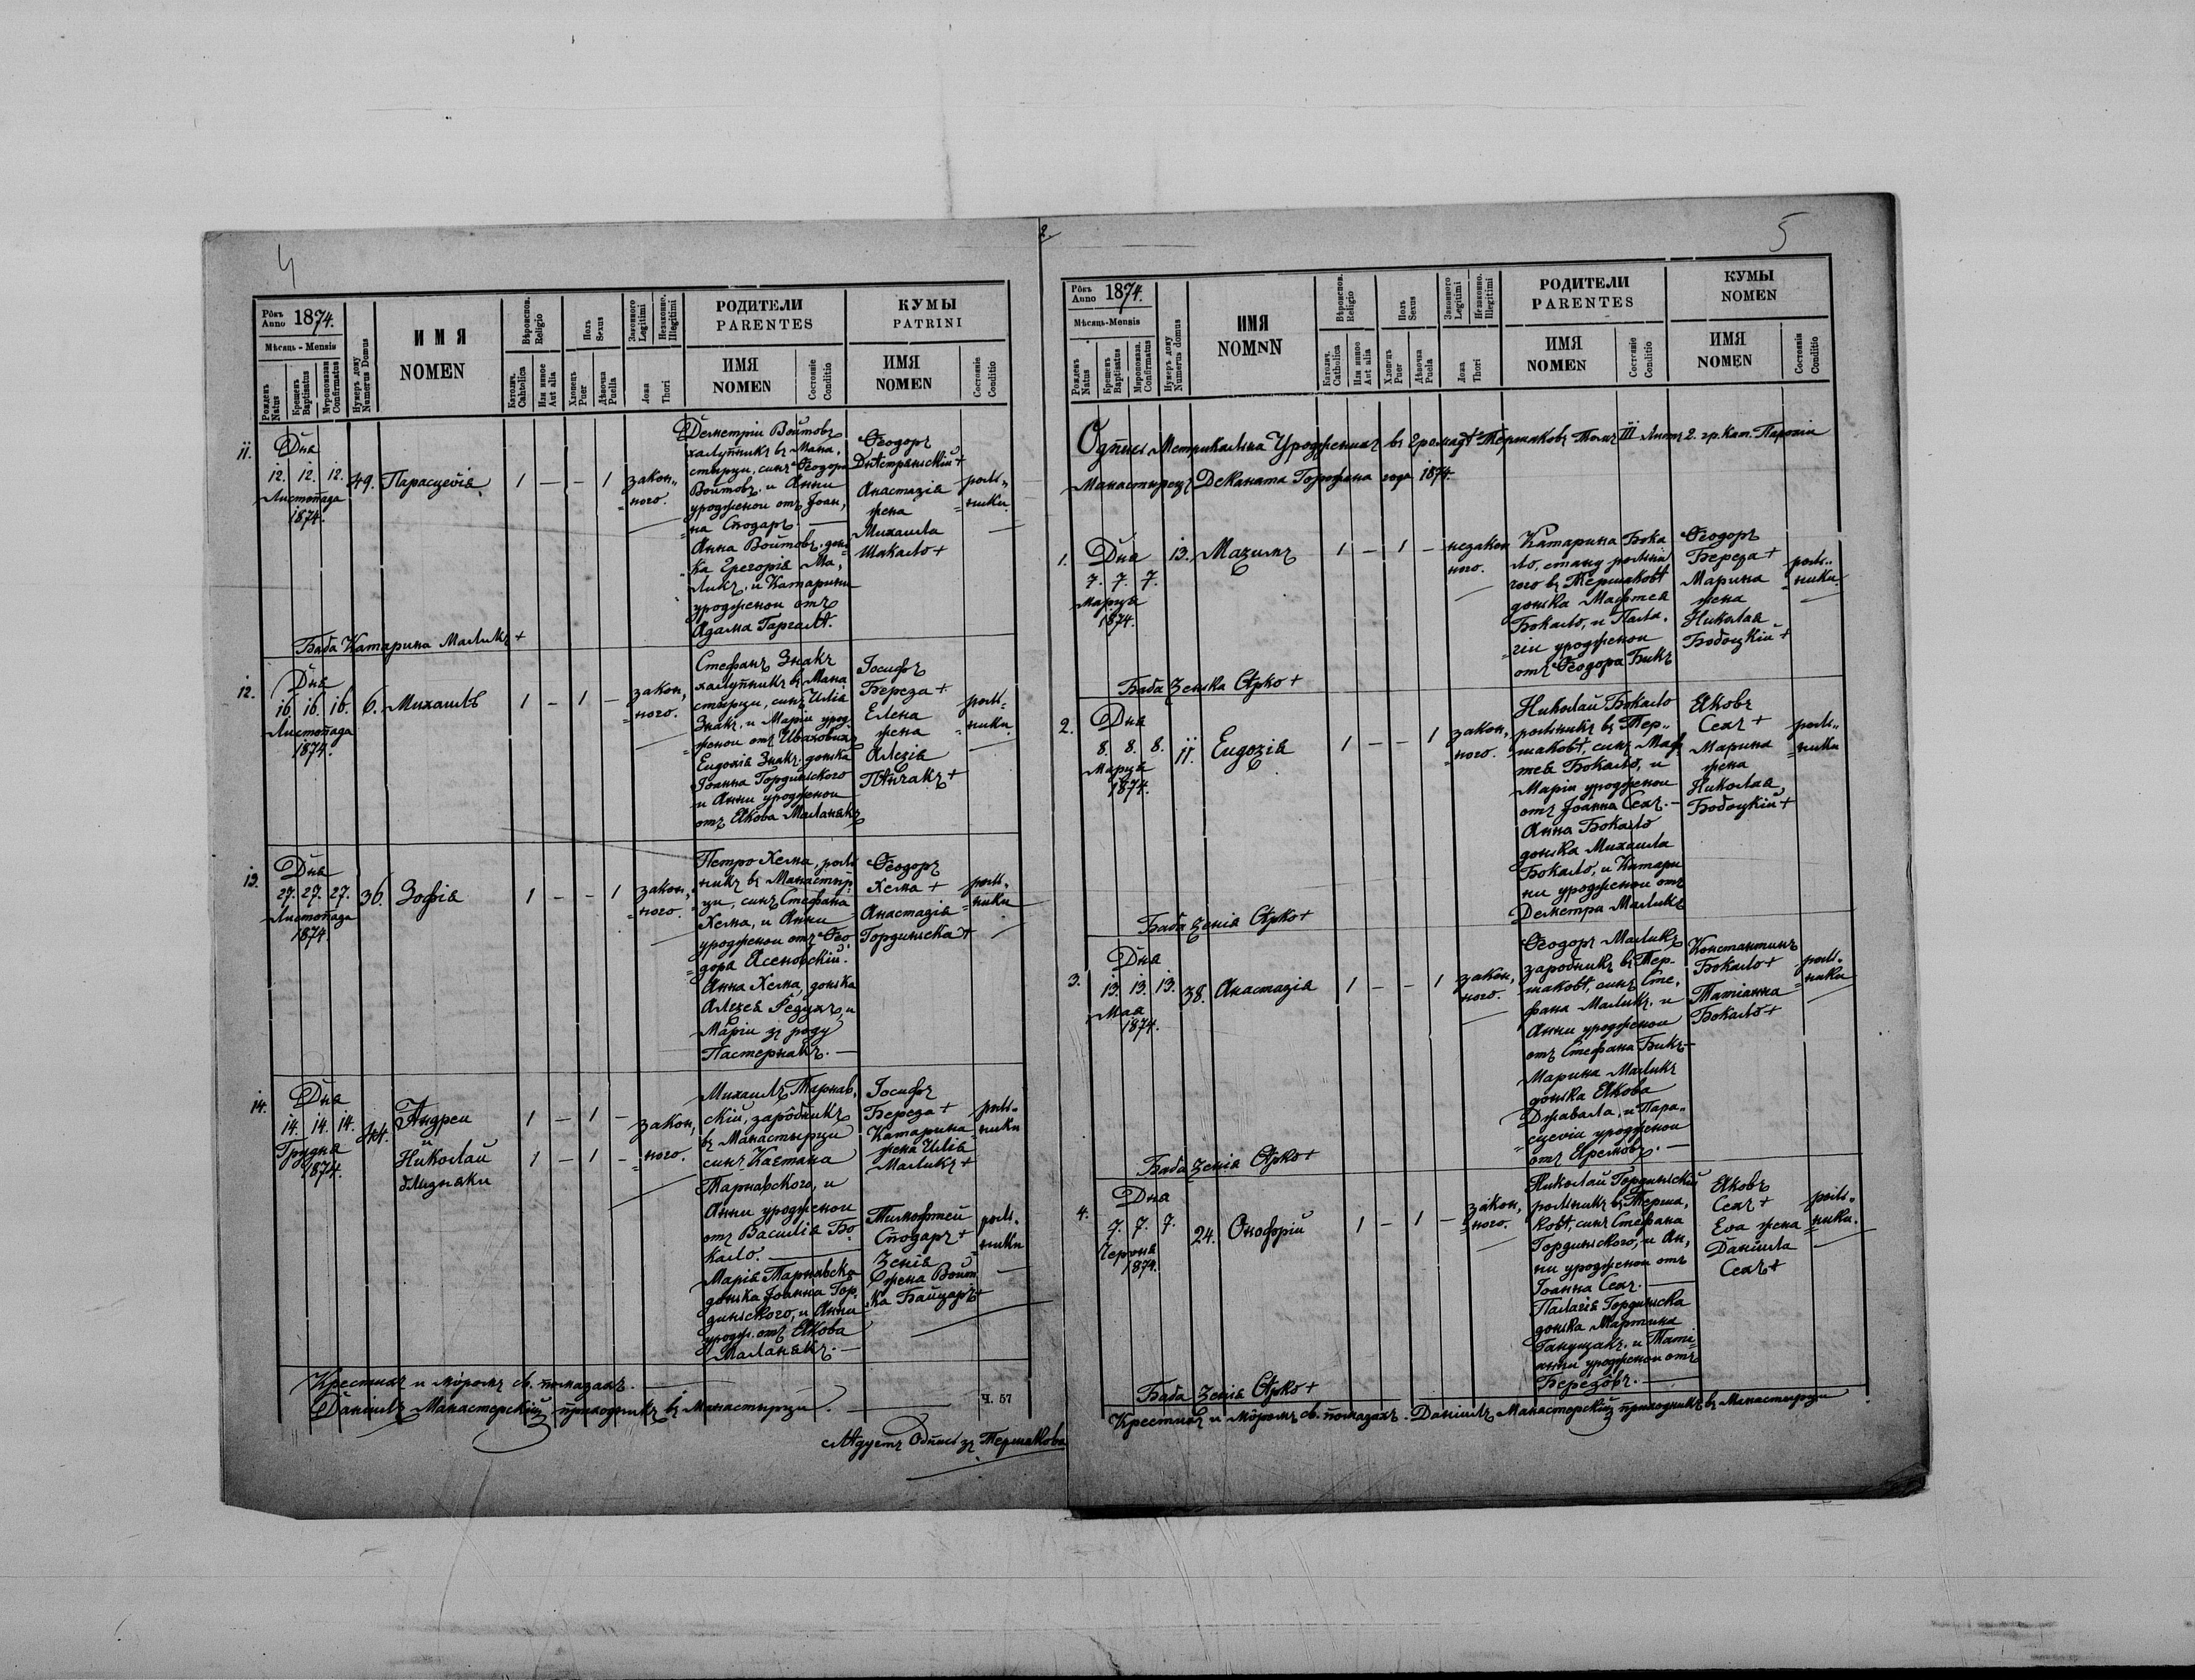 4
Рôкъ Anno 1874.
Мѣсяць - Mensis
Рожденъ Natus
Крещенъ Baptisatus
Мүропомазан Confirmatus
Нумеръ дому Numerus Domus
ИМЯ
NOMEN
Вѣроиспов. Religio
Католич. Catholica
Или инное Aut alia
Полъ Sexus
Хлопець Puer
Дѣвочка Puella
Законного Legitimi
Незаконно. Illegitimi
Ложа Thori
РОДИТЕЛИ
PARENTES
ИМЯ
NOMEN
Состоянiе Conditio
КУМЫ
PATRINI
ИМЯ
NOMEN
Состоянiе Conditio
11.
Дня
12. 12. 12.
Листопада
1874.
49. Парасцевія 1 — — 1
закон„
ного.
Деметрiи Войтовъ
халупникъ въ Мана„
стырци, синъ Ѳеодора
Войтовъ, и Анни
урожденои отъ Іоан„
на Сподаръ. —
Анна Войтовъ, донь
ка Григорія Ма„
ликъ, и Катарини
урожденои отъ
Адама Гаргалѣ.
Ѳеодоръ
Днѣстряньскiй +
Анастазія
жена
Михаила
Шакало +
роль„
ники
Баба Катарина Маликъ +
12.
Дня
16. 16. 16.
Листопада
1874.
6. Михаилъ 1 — 1 —
закон„
ного.
Стефанъ Знакъ
халупникъ въ Мана
стырци, синъ Илія
Знакъ, и Маріи урод
женои отъ Иваховихъ
Евдокія Знакъ, донька
Іоанна Гординьского
и Анни урожденои
отъ Якова Маланякъ
Іосифъ
Береза +
Елена
жена
Алезія
Пѣнчакъ +
роль„
ники
13.
Дня
27. 27. 27.
Листопада
1874.
36. Зофія 1 — — 1
закон„
ного.
Петро Хема, роль
никъ въ Манастыр
ци, синъ Стефана
Хема, и Анни
урожденои отъ Ѳео„
дора Ясеновскій.
Анна Хема, донька
Алезея Федухъ, и
Маріи зъ роду
Пастернакъ. —
Ѳеодоръ
Хема +
Анастазія
Гординьска +
роль„
ники
14.
Дня
14. 14. 14.
Грудня
1874.
44.
Андреи 1 — 1 —
и
Николай 1 — 1 —
близняки
закон„
ного.
Михаилъ Тарнав„
скій, заробникъ
въ Манастырци
синъ Каетана
Тарнавского, и
Анни урожденои
отъ Василія Бо„
кало. —
Марія Тарнавска
донька Іоанна Гор„
диньского, и Анни
урожд. отъ Якова
Маланякъ. —
Іосифъ
Береза +
Катарина
жена Илія
Маликъ +
роль„
ники
Тимофтей
Сподаръ +
Зенія
жена Войт
ка Байцаръ +
роль„
ники
Крестилъ и мôромъ св. помазалъ. —
Даніилъ Манастерскій приходникъ въ Манастырци.
Ч. 57
слѣдуетъ Одпись зъ Тершакова
2.
5
Рôкъ Anno 1874.
Мѣсяць-Mensis
Рожденъ Natus
Крещенъ Baptisatus
Мѵропомаза. Confirmatus
Нумеръ дому Numerus domus
ИМЯ
NOMNN
Вѣроиспов. Religio
Католич. Catholica
Или инное Aut alia
Полъ Sexus
Хлопець Puer
Дѣвочка Puella
Законного Legitimi
Незаконно. Illegitimi
Ложа Thori
РОДИТЕЛИ
PARENTES
ИМЯ
NOMEN
Состоянiе Conditio
КУМЫ
NOMEN
ИМЯ
NOMEN
Состоянiе Conditio
Одпись Метрикальна Урожденихъ въ Громадѣ Тершаковъ Томъ III Листъ 2. гр. Кат. Парохіи
Манастырецъ Деканата Горожана года 1874.
1.
Дня
7. 7. 7.
Марця
1874.
13. Мазимъ 1 — 1 —
незакон
ного.
Катарина Бока
ло, стану рольни
чого въ Тершаковѣ
донька Мафтея
Бокало, и Пала„
гіи урожденои
отъ Ѳеодора Бикъ
Ѳеодоръ
Береза +
Марина
жена
Николая
Бобоцкій +
роль„
ники
Баба Зенька Ярко +
2.
Дня
8. 8. 8.
Марця
1874.
11. Евдозія 1 — — 1
закон„
ного.
Николай Бокало
рольникъ въ Тер„
шаковѣ, синъ Маф
тея Бокало, и
Маріи урожденои
отъ Іоанна Сехъ. —
Анна Бокало
донька Михаила
Бокало, и Катари
ни урожденои отъ
Деметра Маликъ
Яковъ
Сехъ +
Марина
жена
Николая
Бобоцкій +
роль„
ники
Баба Зенія Ярко +
3.
Дня
13. 13. 13.
Мая
1874.
38. Анастазія 1 — — 1
закон„
ного.
Ѳеодоръ Маликъ
заробникъ въ Тер„
шаковѣ, синъ Сте„
фана Маликъ, и
Анни урожденои
отъ Стефана Бикъ —
Марина Маликъ
донька Якова
Джавала, и Пара„
сцевіи урожденои
отъ Яремовъ. —
Константинъ
Бокало +
Татіанна
Бокало +
роль„
ники
Баба Зенія Ярко +
4.
Дня
7. 7. 7.
Червня
1874.
24. Онофрій 1 — 1 —
закон„
ного.
Николай Гординьскій
рольникъ въ Терша„
ковѣ, синъ Стефана
Гординьского, и Ан„
ни урожденои отъ
Іоанна Сехъ. —
Палагія Гординьска
донька Мартина
Ганущакъ, и Тати
анни урожденои отъ
Березôвъ. —
Яковъ
Сехъ +
Ева жена
Даніила
Сехъ +
роль„
ники.
Баба Зенія Ярко +
Крестилъ и мôромъ св. помазалъ. Даніилъ Манастерскій приходникъ въ Манастырци